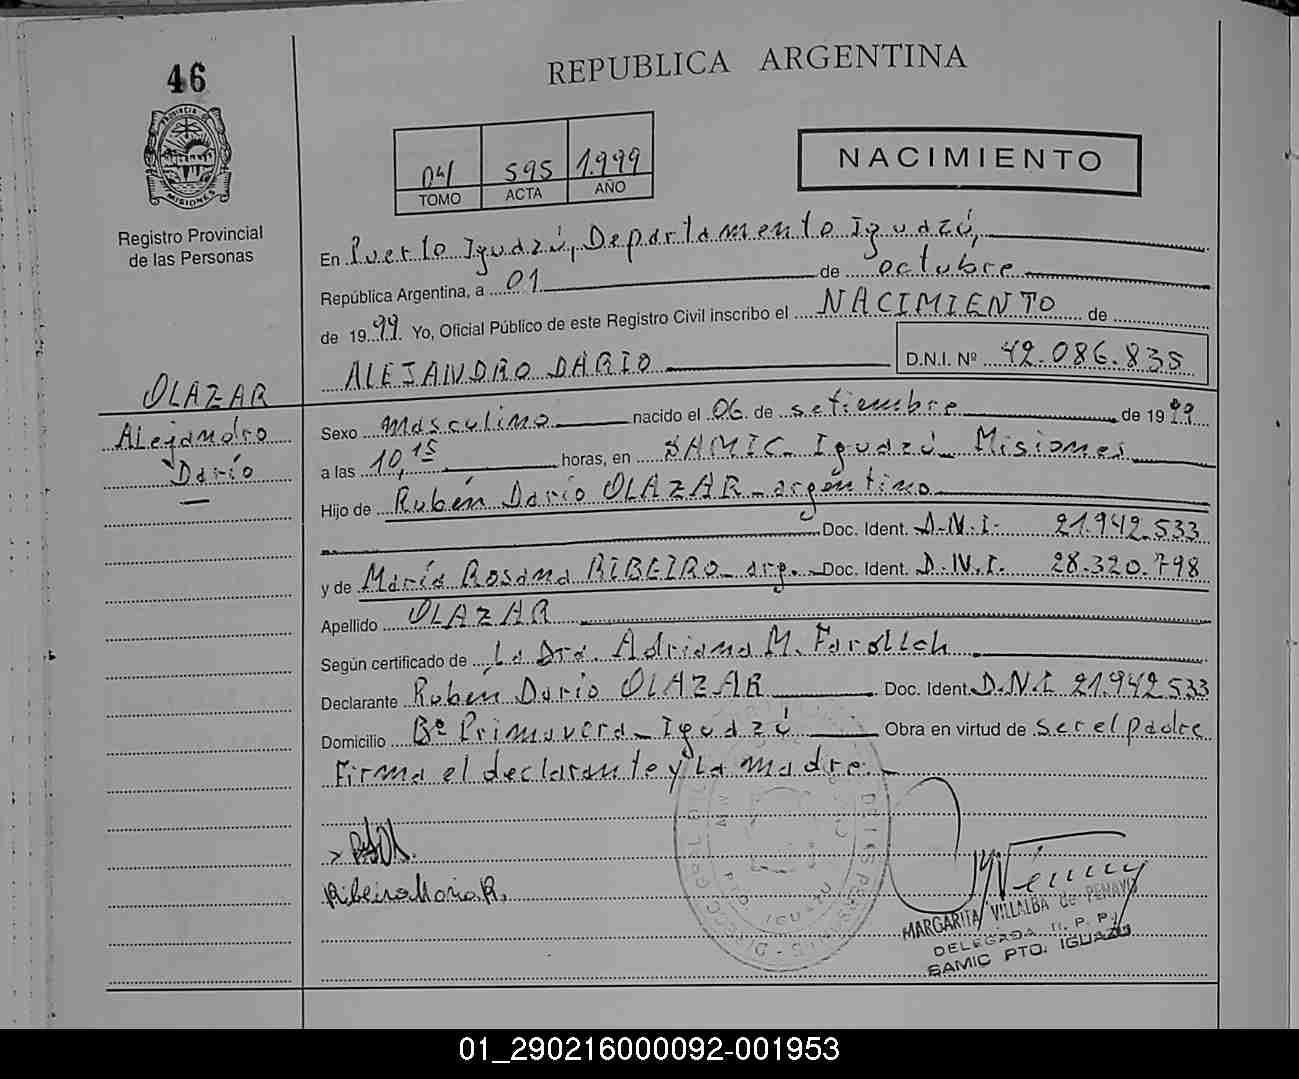 46
REPUBLICA ARGENTINA
PROVINCIA DE
MISIONES
Registro Provincial
de las Personas
04 595 1.999
TOMO ACTA AÑO
NACIMIENTO
En Puerto Iguazú, Departamento Iguazú,
República Argentina, a 01 de octubre
de 1999 Yo, Oficial Público de este Registro Civil inscribo el NACIMIENTO de
ALEJANDRO DARIO D.N.I. Nº 42.086.835
OLAZAR
Alejandro
Darío
Sexo masculino nacido el 06 de setiembre de 1999
a las 10,15 horas, en SAMIC - Iguazú - Misiones
Hijo de Rubén Darío OLAZAR - argentino
Doc. Ident. D.N.I. 21.942.533
y de María Rosana RIBEIRO - arg. - Doc. Ident. D.N.I. 28.320.798
Apellido OLAZAR
Según certificado de La Dra. Adriana M.
Declarante Rubén Darío OLAZAR Doc. Ident. D.N.I. 21.942.533
Domicilio Bº Primavera - Iguazú Obra en virtud de ser el padre
Firma el declarante y la madre.-
Ribeiro Maria R.
MARGARITA VILLALBA de PENAYO
DELEGADA R. P. P.
SAMIC PTO. IGUAZU
01_290216000092-001953